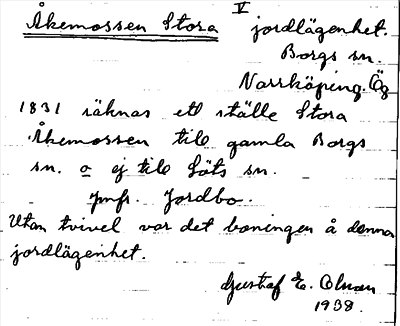 V
Åkemossen Stora jordlägenhet.
Borgs sn.
Norrköping. Ög
1831 räknas ett ställe Stora
Åkemossen till gamla Borgs
sn. o ej till Löts sn.
Jmfr. Jordbo.
Utan tvivel var det boningen å denna
jordlägenhet.
Gustaf E. Olson
1938.